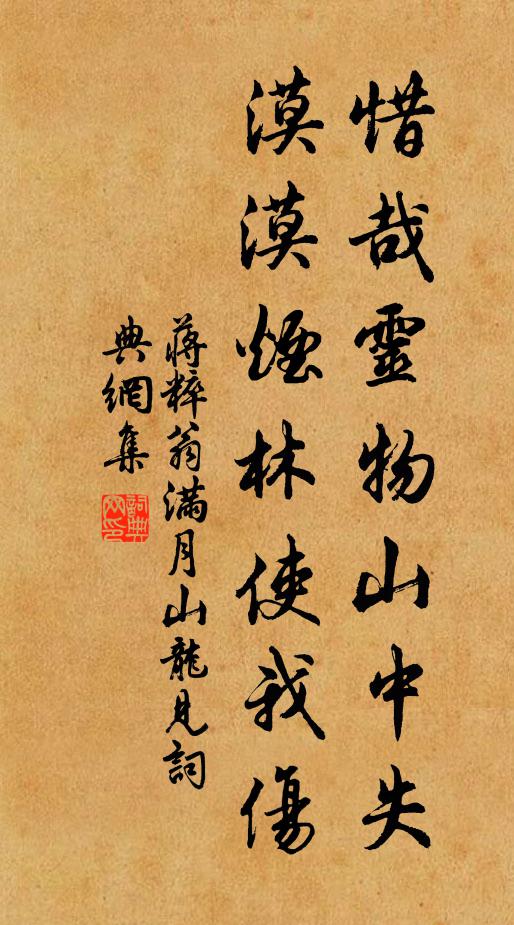 惜哉靈物山中失
漠漠煙林使我傷
蔣粹翁滿月山龍見詞
典網集
詞典網印